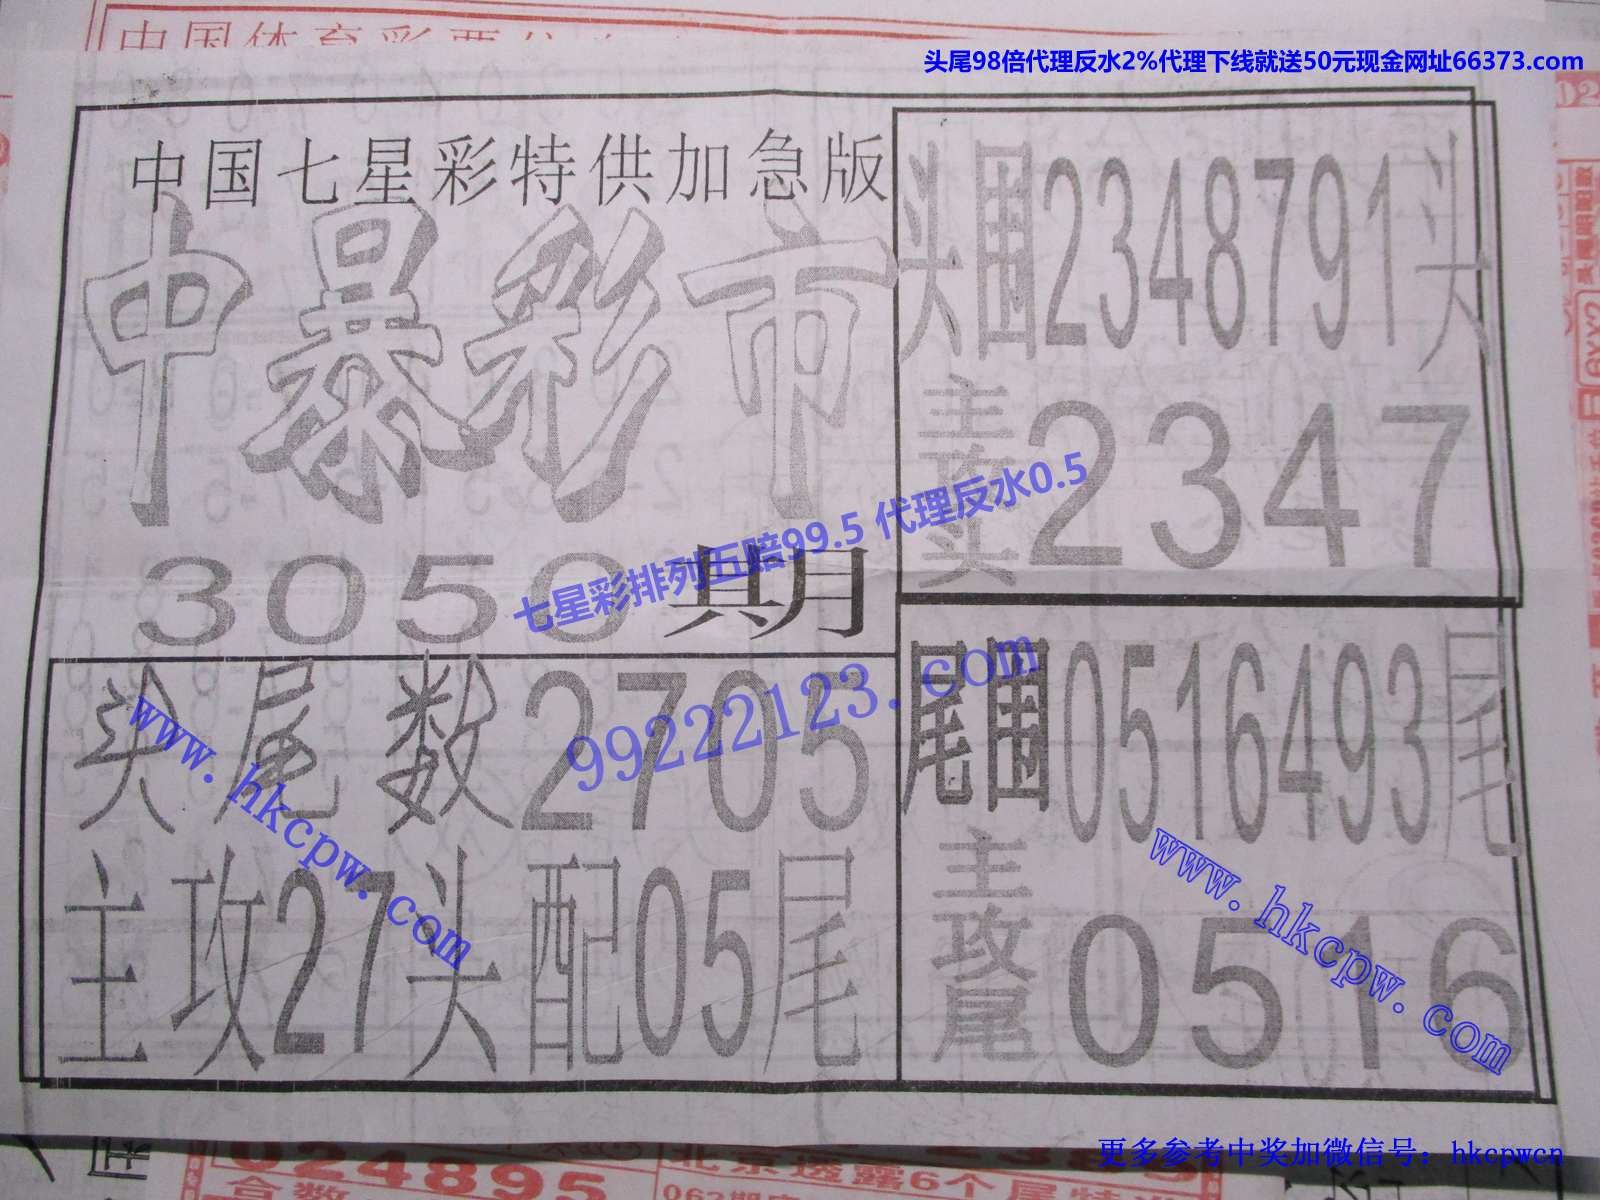 头尾98倍代理反水2%代理下线就送50元现金网址66373.com
中国体育彩票
中国七星彩特供加急版
中暴彩市
3050期
七星彩排列五赔99.5 代理反水0.5
99222123.com
头围2348791头
主攻头2347
头尾数2705
主攻27头配05尾
www.hkcpw.com
尾围0516493尾
主攻尾0516
www.hkcpw.com
024895
合数
北京透露6个尾特
更多参考中奖加微信号：hkcpwcn